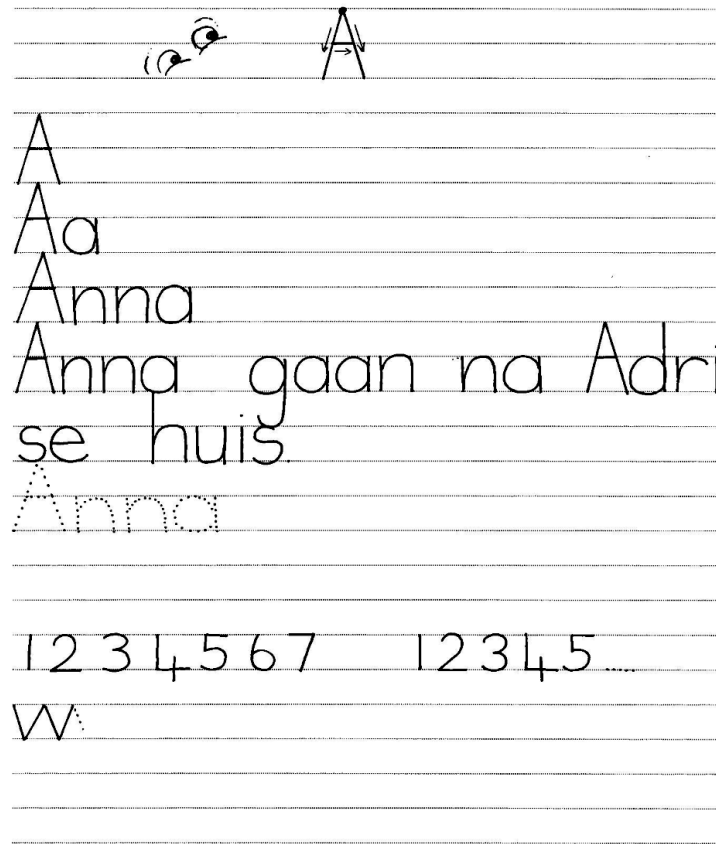 A
A
Aa
Anna
Anna gaan na Adri
se huis.
Anna
1 2 3 4 5 6 7 1 2 3 4 5 .....
W